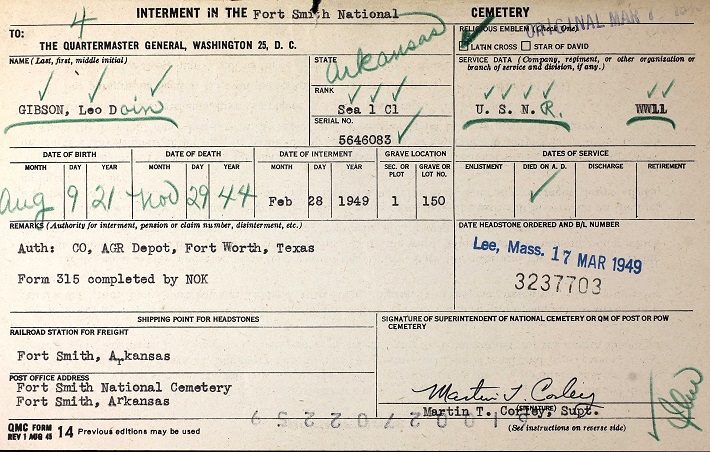 4
INTERMENT IN THE Fort Smith National CEMETERY
ORIGINAL MAR
TO:
THE QUARTERMASTER GENERAL, WASHINGTON 25, D. C.
RELIGIOUS EMBLEM (Check One)
LATIN CROSS STAR OF DAVID
NAME (Last, first, middle initial)
GIBSON, Leo Doin
STATE
Arkansas
RANK
Sea 1 Cl
SERIAL NO.
5646083
SERVICE DATA (Company, regiment, or other organization or
branch of service and division, if any.)
U. S. N. R. WW11
DATE OF BIRTH DATE OF DEATH DATE OF INTERMENT GRAVE LOCATION DATES OF SERVICE
MONTH DAY YEAR MONTH DAY YEAR MONTH DAY YEAR SEC. OR PLOT GRAVE OR LOT NO. ENLISTMENT DIED ON A. D. DISCHARGE RETIREMENT
Aug 9 21 Nov 29 44 Feb 28 1949 1 150
REMARKS (Authority for interment, pension or claim number, disinterment, etc.)
Auth: CO, AGR Depot, Fort Worth, Texas
Form 315 completed by NOK
DATE HEADSTONE ORDERED AND B/L NUMBER
Lee, Mass. 17 MAR 1949
3237703
SHIPPING POINT FOR HEADSTONES
RAILROAD STATION FOR FREIGHT
Fort Smith, Arkansas
POST OFFICE ADDRESS
Fort Smith National Cemetery
Fort Smith, Arkansas
SIGNATURE OF SUPERINTENDENT OF NATIONAL CEMETERY OR QM OF POST OR POW
CEMETERY
Martin T. Corley
Martin T. Corley, Supt.
(SIGNATURE)
(See instructions on reverse side)
QMC FORM
REV 1 AUG 45 14 Previous editions may be used